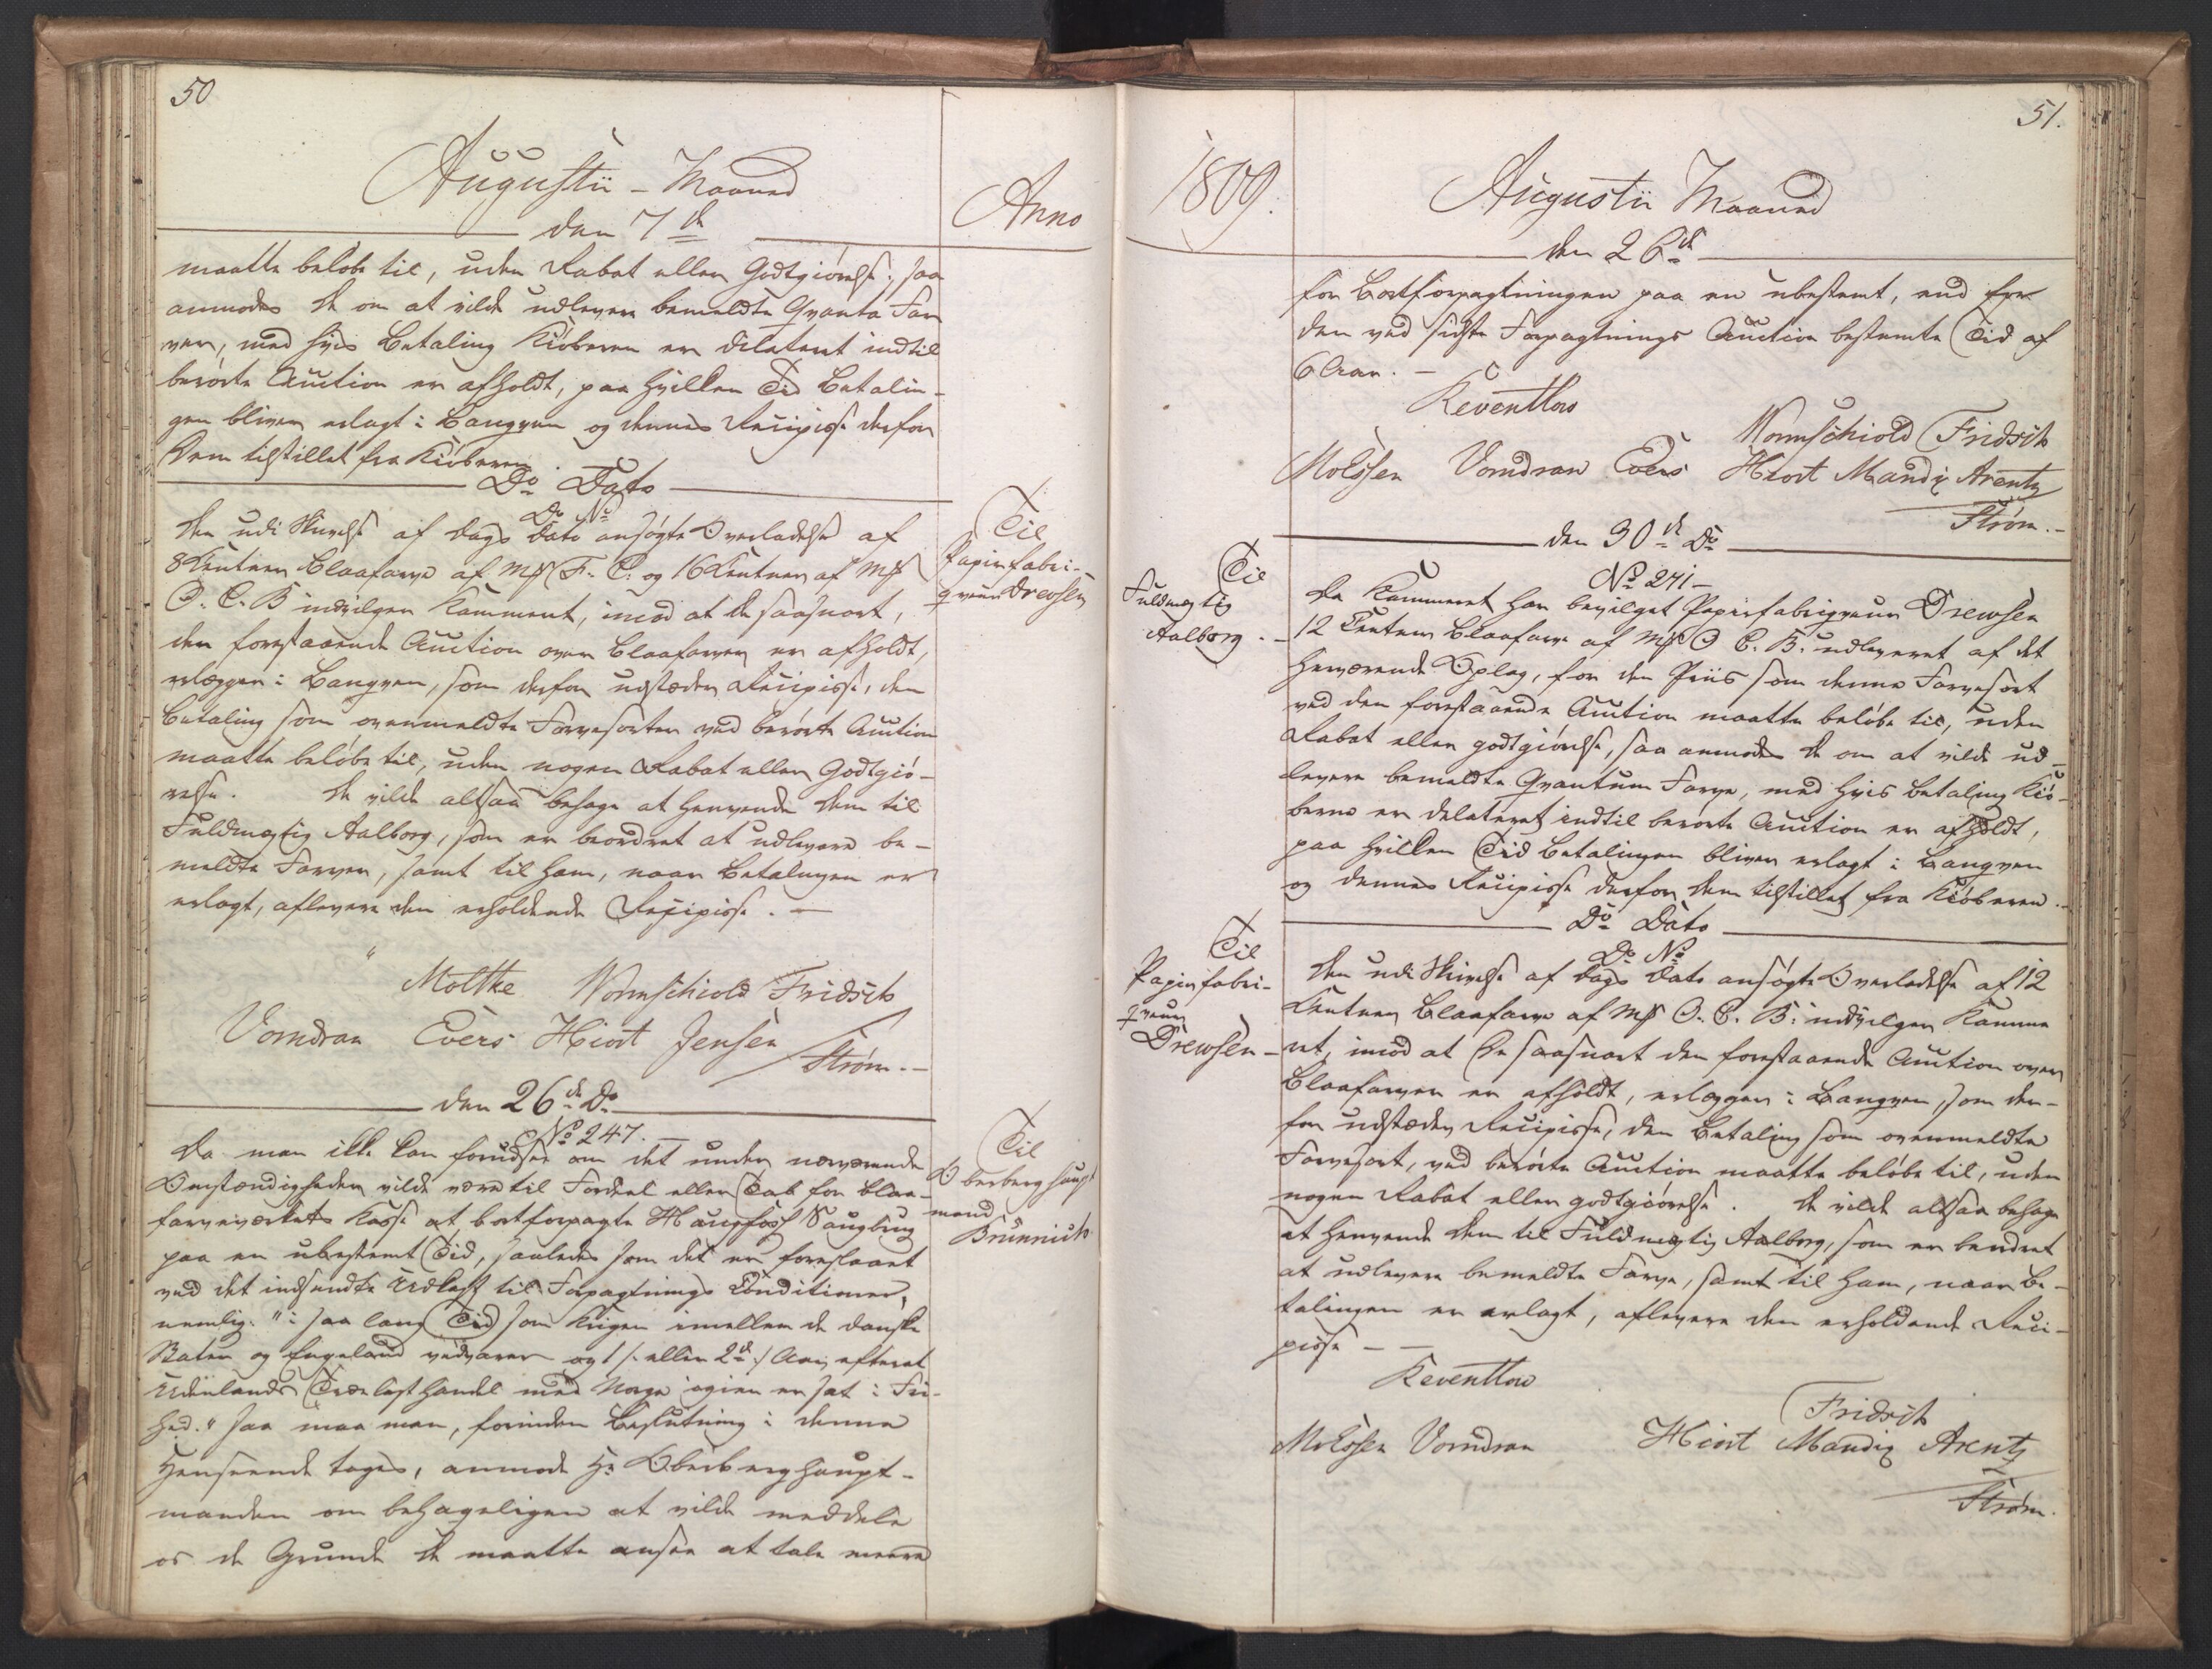 50
Augustii - Maaned
Anno
den 7de
maatte beløbe til, uden Rabat eller Godtgiørelse; saa
anmodes De om at vilde udlevere bemeldte Qvanta Far
ver, med hvis Betaling Kiøberen er dilateret indtil
berørte Auction er afholdt, paa hvilken Tid Betalin-
gen bliver erlagt i Banqven og dennes Recipisse derfor
Dem tilstillet fra Kiøberen.
Do Dato
Do No
Til
Papirfabri-
qveur Drewsen
Den udi Skrivelse af Dags Dato ansøgte Overladelse af
8 Centner Blaafarve af Mk F. C. og 16 Centner af Mk
O. C. B indvilger Kammeret, imod at De saasnart,
den forestaaende Auction over Blaafarver er afholdt,
erlægger i Banqven, som derfor udstæder Recipisse, den
Betaling som ovenmeldte Farvesorter ved berørte Auction
maatte beløbe til, uden nogen Rabat eller Godtgiø-
relse. De vilde altsaa behage at henvende Dem til
Fuldmægtig Aalborg, som er beordret at udlevere be-
meldte Farver, samt til ham, naar Betalingen er
erlagt, aflevere den erholdende Recipisse. —
Moltke Wormschiold Fridsch
Vorndran Evers Hiort Jensen
Strøm. -
den 26de Do
No 247.
Til
Oberberghaupt
mand
Brünnich
Da man ikke kan forudsee om det under nærværende
Omstændigheder vilde være til Fordeel eller Tab for Blaa-
farveværkets Kasse at bortforpagte Haugfoss Saugbrug
paa en ubestemt Tid, saaledes som det er foreslaaet
ved det indsendte Udkast til Forpagtnings Conditioner,
nemlig: "i saa lang Tid som Krigen imellem de danske
Stater og Engeland vedvarer og 1 /: eller 2de :/ Aar efterat
Udenlands Trælast Handel med Norge igien er sat i Fri-
hed." saa maa man, forinden Beslutning i denne
Henseende tages, anmode Hr Oberberghaupt-
manden om behageligen at vilde meddele
os de Grunde De maatte ansee at tale meere
51.
1809.
Augustii Maaned
den 26de
for Bortforpagtningen paa en ubestemt, end for
den ved sidste Forpagtnings Auction bestemte Tid af
6 Aar. —
Reventlow
Wormschiold Fridsch
Molssen Vorndran Evers Hiort Mandix Arentz
Strøm. -
den 30de Do
No 241 -
Til
Fuldmægtig
Aalborg. -
Da Kammeret har bevilget Papirfabriqveur Drewsen
12 Centner Blaafarve af Mk O C. B. udleveret af det
herværende Oplag, for den Priis som denne Farvesort
ved den forestaaende Auction maatte beløbe til, uden
Rabat eller godtgiørelse, saa anmodes De om at vilde ud-
levere bemeldte Qvantum Farve, med hvis Betaling Kiø-
berne er delateret indtil berørte Auction er afholdt,
paa hvilken Tid Betalingen bliver erlagt i Banqven
og dennes Recipisse derfor Dem tilstillet fra Kiøberen.
Do Dato
Do No
Til
Papirfabri-
qveur
Drewsen -
Den udi Skrivelse af Dags Dato ansøgte Overladelse af 12
Centner Blaafarve af Mk O. C. B. indvilger Kamme
ret, imod at De saasnart den forestaaende Auction over
Blaafarver er afholdt, erlægger i Banqven, som der-
for udstæder Recipisse, den Betaling som ovenmeldte
Farvesort, ved berørte Auction maatte beløbe til, uden
nogen Rabat eller godtgiørelse. De vilde altsaa behage
at henvende Dem til Fuldmægtig Aalborg, som er beordret
at udlevere bemeldte Farve, samt til ham, naar Be-
talingen er erlagt, aflevere den erholdende Reci-
pisse — —
Reventlow
Fridsch
Molssen Vorndran Hiort Mandix Arentz
Strøm.